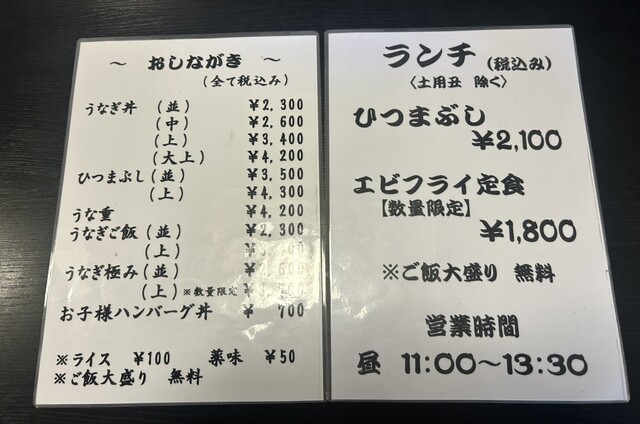 ～ おしながき ～
(全て税込み)
うなぎ丼 (並) ¥2,300
(中) ¥2,600
(上) ¥3,400
(大上) ¥4,200
ひつまぶし (並) ¥3,500
(上) ¥4,300
うな重 ¥4,200
うなぎご飯 (並) ¥2,300
(上)
うなぎ極み (並)
(上) ※数量限定
お子様ハンバーグ丼 ¥ 700
※ライス ¥100 薬味 ¥50
※ご飯大盛り 無料
ランチ (税込み)
〈土用丑 除く〉
ひつまぶし
¥2,100
エビフライ定食
【数量限定】
¥1,800
※ご飯大盛り 無料
営業時間
昼 11:00～13:30